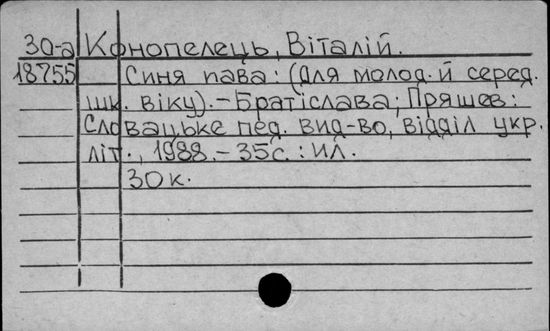 30-а Конопелець, Віталій.
18755 Синя пава: (Для молод. й серед.
шк. віку). - Братіслава; Пряшев:
Словацьке пед. вид-во, відділ укр.
літ., 1988. - 35с.: ил.
30к.